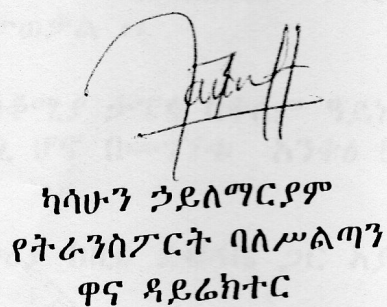 ካሳሁን ኃይለማርያም
የትራንስፖርት ባለሥልጣን
ዋና ዳይሬክተር